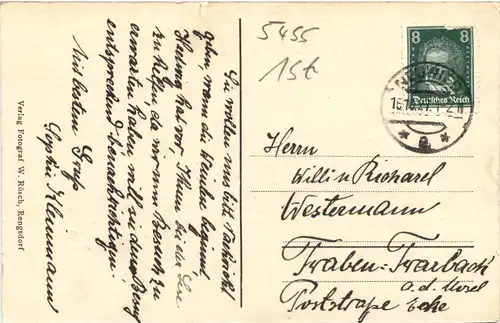 Sie wollen uns bitte Nachricht
geben, wann die Weinlese beginnt.
Hedwig hat vor Ihnen bei der Lese
zu helfen, da wir zum Besuch zu
erwarten haben will in dem Beng
entsprechend benachrichtigen.
Mit bestem Gruß
Sophie Kleinmann
Verlag Fotograf W. Rüsch, Rengsdorf
5455
15t
8 8
Deutsches Reich
Herrn
Willi u Richard
Westermann
Traben-Trarbach
a.d. Mosel
Poststraße Ecke